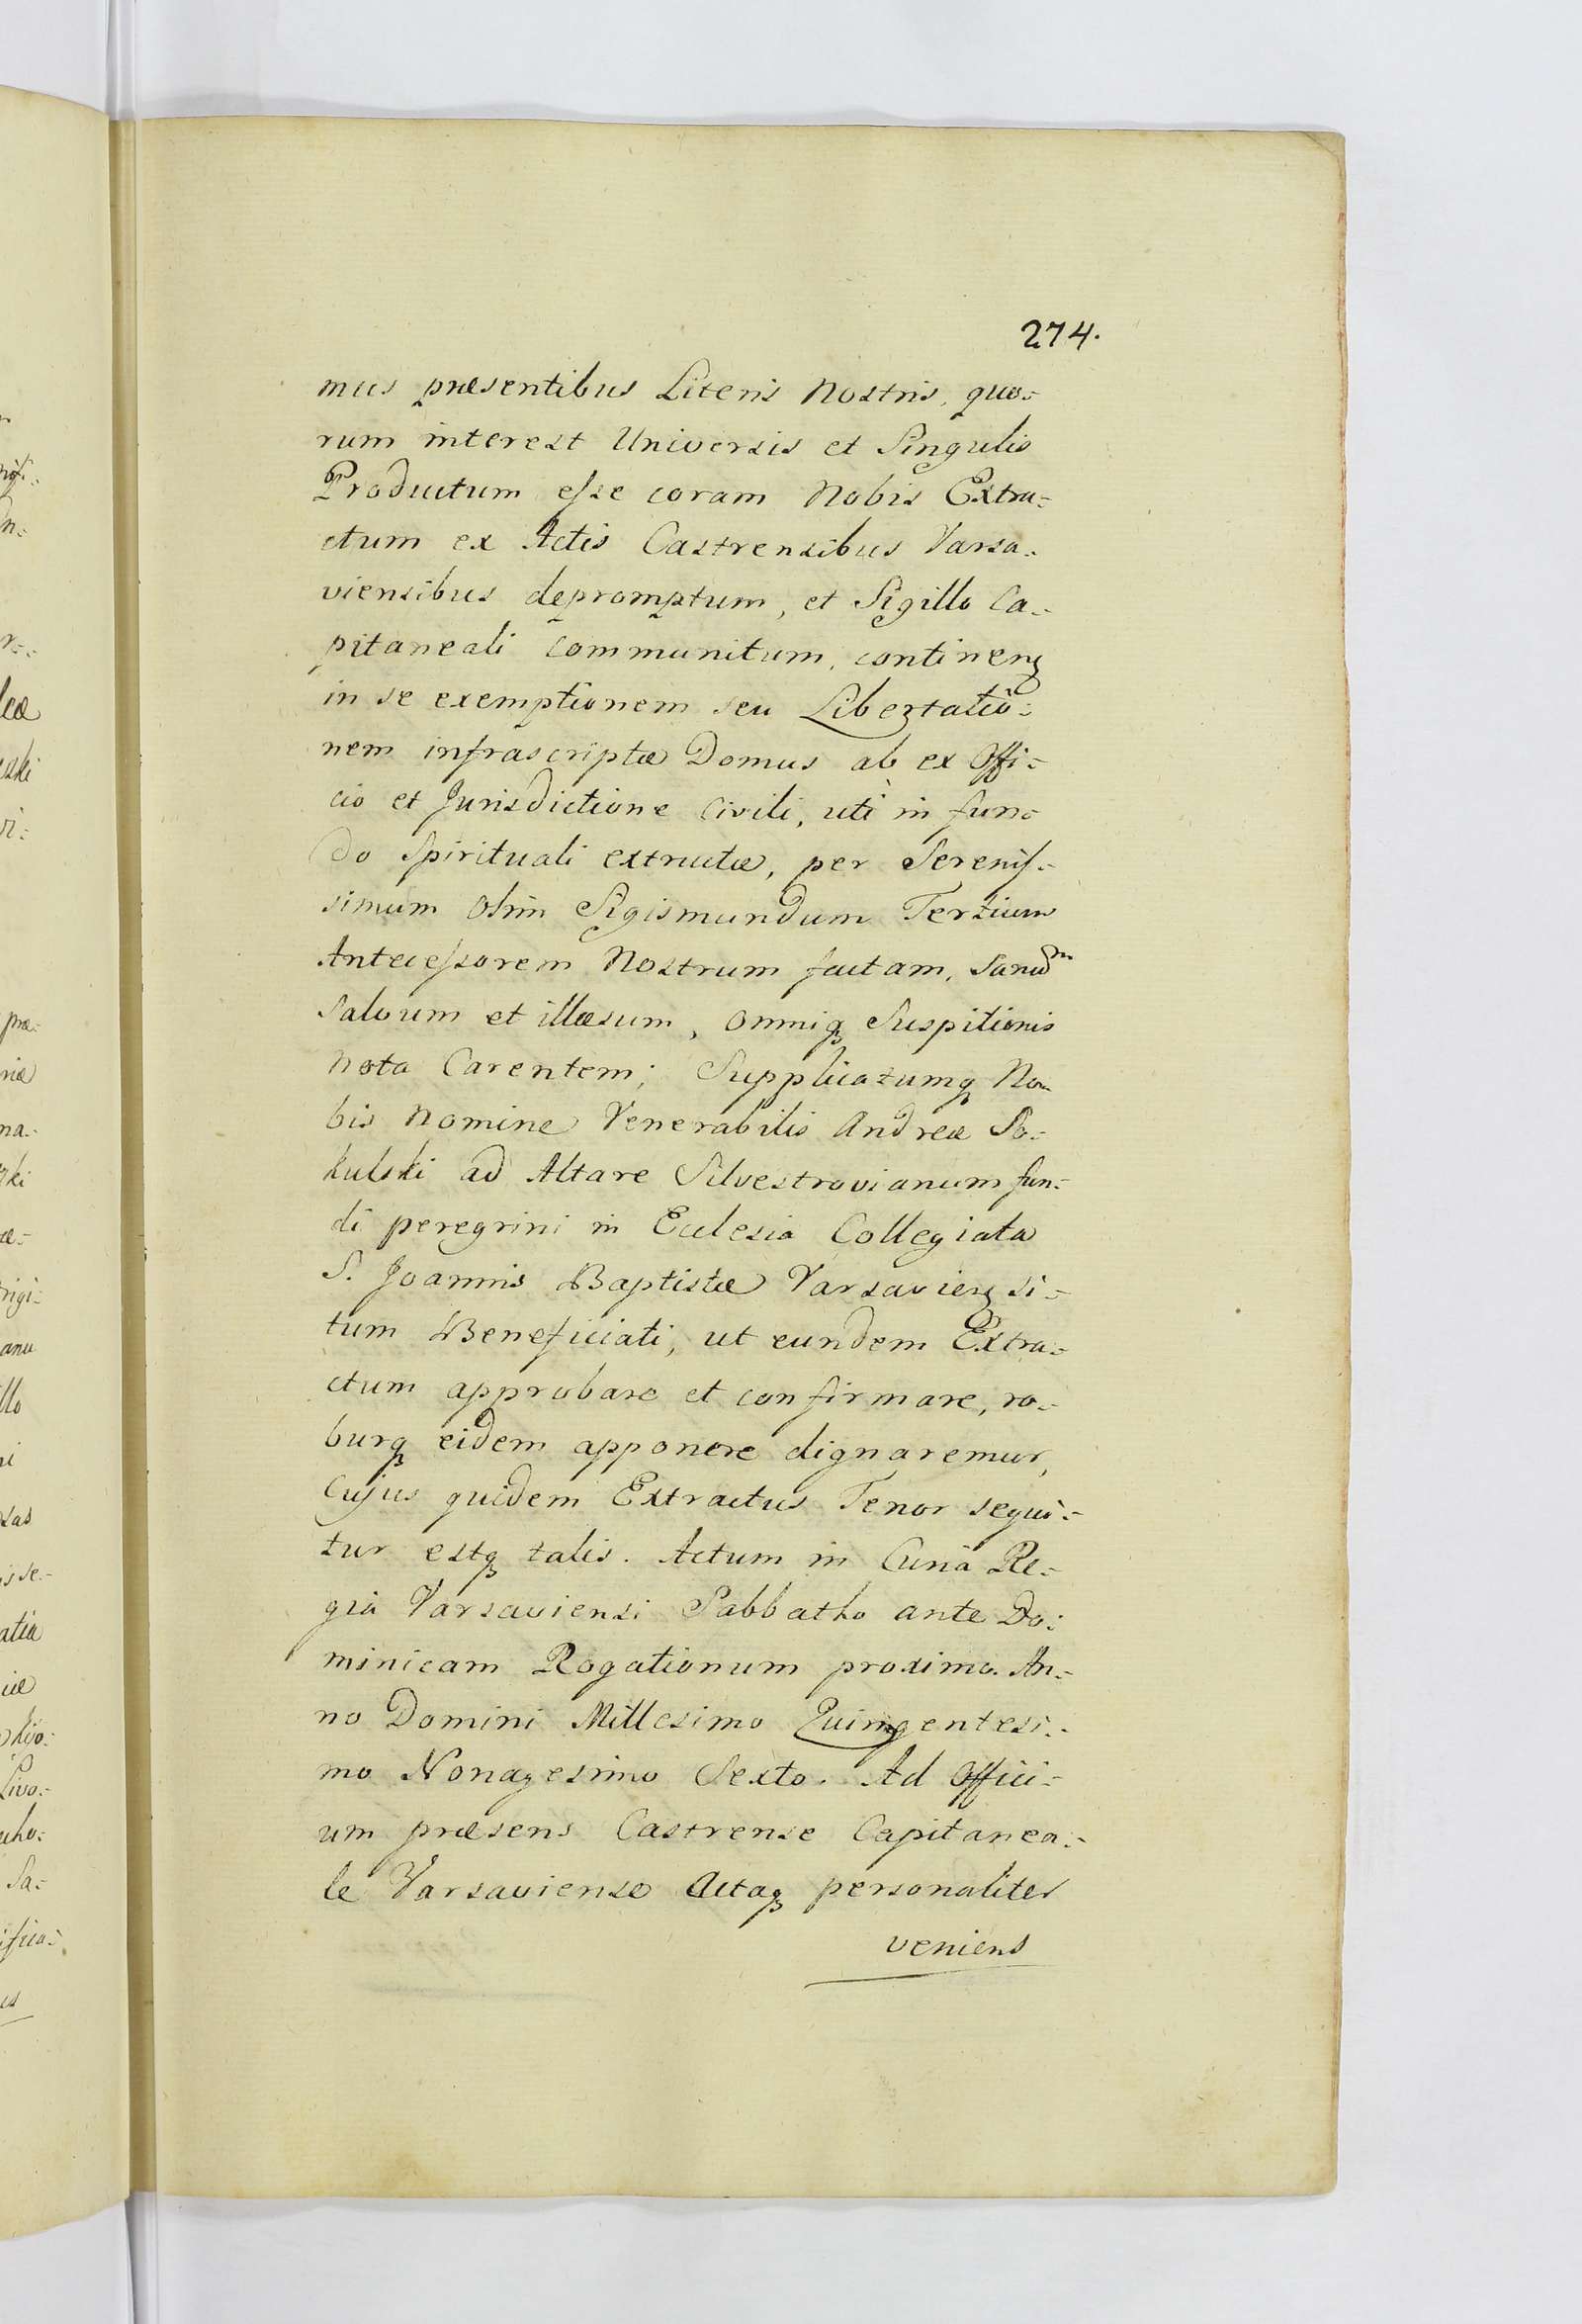 274.
mus præsentibus Literis Nostris, quo-
rum interest Universis et Singulis
Productum esse coram Nobis Extra-
ctum ex Actis Castrensibus Varsa-
viensibus depromptum, et Sigillo Ca-
pitaneali communitum, continenꝫ
in se exemptionem seu Libertatio-
nem infrascriptæ Domus ab ex Offi-
cio et Jurisdictione Civili, uti in fun-
do Spirituali extructæ, per Serenis-
simum Olim Sigismundum Tertium
Antecessorem Nostrum factam, Sanum
Salvum et illæsum, omniqꝫ Suspitionis
nota Carentem; Supplicatumqꝫ No-
bis Nomine Venerabilis Andreæ So-
kulski ad Altare Silvestrovianum fun-
di peregrini in Ecclesia Collegiata
S. Joannis Baptistæ Varsavienꝫ si-
tum Beneficiati, ut eundem Extra-
ctum approbare et confirmare, ro-
burqꝫ eidem apponere dignaremur,
Cujus quidem Extractus Tenor sequi-
tur estqꝫ talis. Actum in Curia Re-
gia Varsaviensi Sabbatho ante Do-
minicam Rogationum proximo. An-
no Domini Millesimo Quingentesi-
mo Nonagesimo Sexto. Ad Offici-
um præsens Castrense Capitanea-
le Varsaviense Actaqꝫ personaliter
veniens